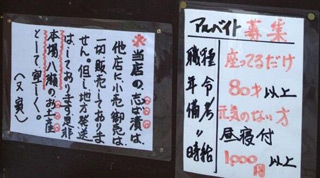 ※当店の志ば漬は、
他店に小売卸売は
一切販売しておりま
せん。但し地方発送
はしております是非
本場八瀬のお土産
として
アルバイト募集
職種 座ってるだけ
年令 80才以上
備考 元気のない方
〃 昼寝付
時給 1,000円以上